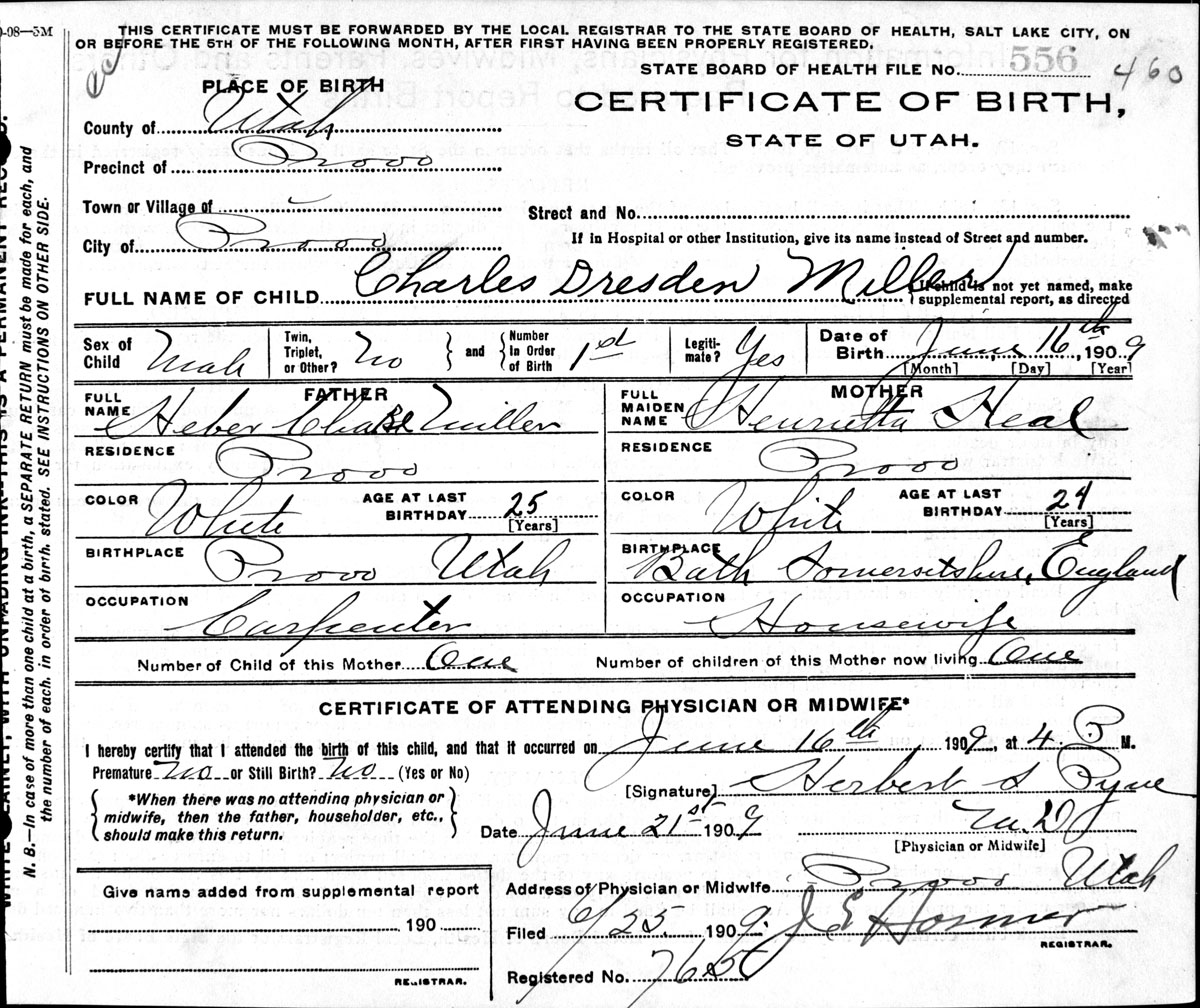 0-08—5M
THIS CERTIFICATE MUST BE FORWARDED BY THE LOCAL REGISTRAR TO THE STATE BOARD OF HEALTH, SALT LAKE CITY, ON
OR BEFORE THE 5TH OF THE FOLLOWING MONTH, AFTER FIRST HAVING BEEN PROPERLY REGISTERED,
STATE BOARD OF HEALTH FILE No. 556 460
PLACE OF BIRTH
CERTIFICATE OF BIRTH,
STATE OF UTAH.
County of Utah
Precinct of Provo
Town or Village of
Street and No.
City of Provo
If in Hospital or other Institution, give its name instead of Street and number.
FULL NAME OF CHILD Charles Dresden Miller
{If child is not yet named, make
supplemental report, as directed
Sex of Child Male Twin, Triplet, or Other? No } and { Number In Order of Birth 1st Legitimate? Yes Date of Birth June 16th, 1909
[Month] [Day] [Year]
FATHER MOTHER
FULL NAME Heber Chase Miller FULL MAIDEN NAME Henrietta Heal
RESIDENCE Provo RESIDENCE Provo
COLOR White AGE AT LAST BIRTHDAY 25 [Years] COLOR White AGE AT LAST BIRTHDAY 24 [Years]
BIRTHPLACE Provo Utah BIRTHPLACE Bath Somersetshire, England
OCCUPATION Carpenter OCCUPATION Housewife
Number of Child of this Mother One Number of children of this Mother now living One
CERTIFICATE OF ATTENDING PHYSICIAN OR MIDWIFE*
I hereby certify that I attended the birth of this child, and that it occurred on June 16th, 1909, at 4 P M.
Premature No or Still Birth? No (Yes or No)
[Signature] Herbert S Pyne
{ *When there was no attending physician or
midwife, then the father, householder, etc.,
should make this return. }
Date June 21st 1909 M.D.
[Physician or Midwife]
Give name added from supplemental report
190
REGISTRAR.
Address of Physician or Midwife Provo Utah
Filed 6/25 1909. J E Horner
REGISTRAR.
Registered No.
N. B.—In case of more than one child at a birth, a SEPARATE RETURN must be made for each, and
the number of each, in order of birth, stated. SEE INSTRUCTIONS ON OTHER SIDE.
WITH UNFADING INK—THIS IS A PERMANENT